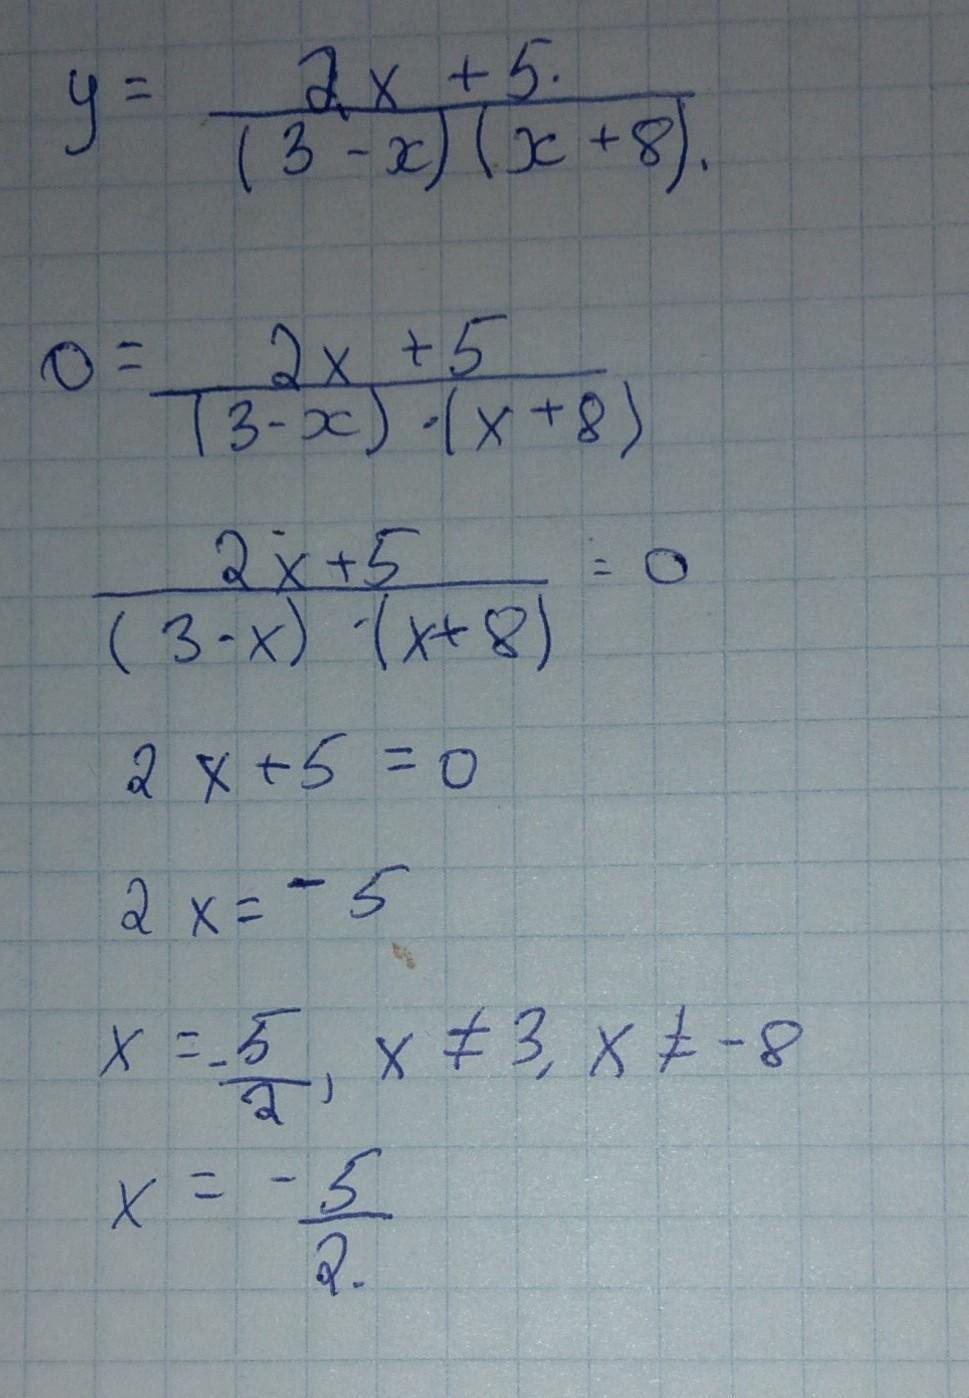 y = 2x + 5.
(3 - x) (x + 8).
0 = 2x + 5
(3 - x) · (x + 8)
2x + 5 = 0
(3 - x) · (x + 8)
2x + 5 = 0
2x = - 5
x = - 5/2, x ≠ 3, x ≠ - 8
x = - 5/2.